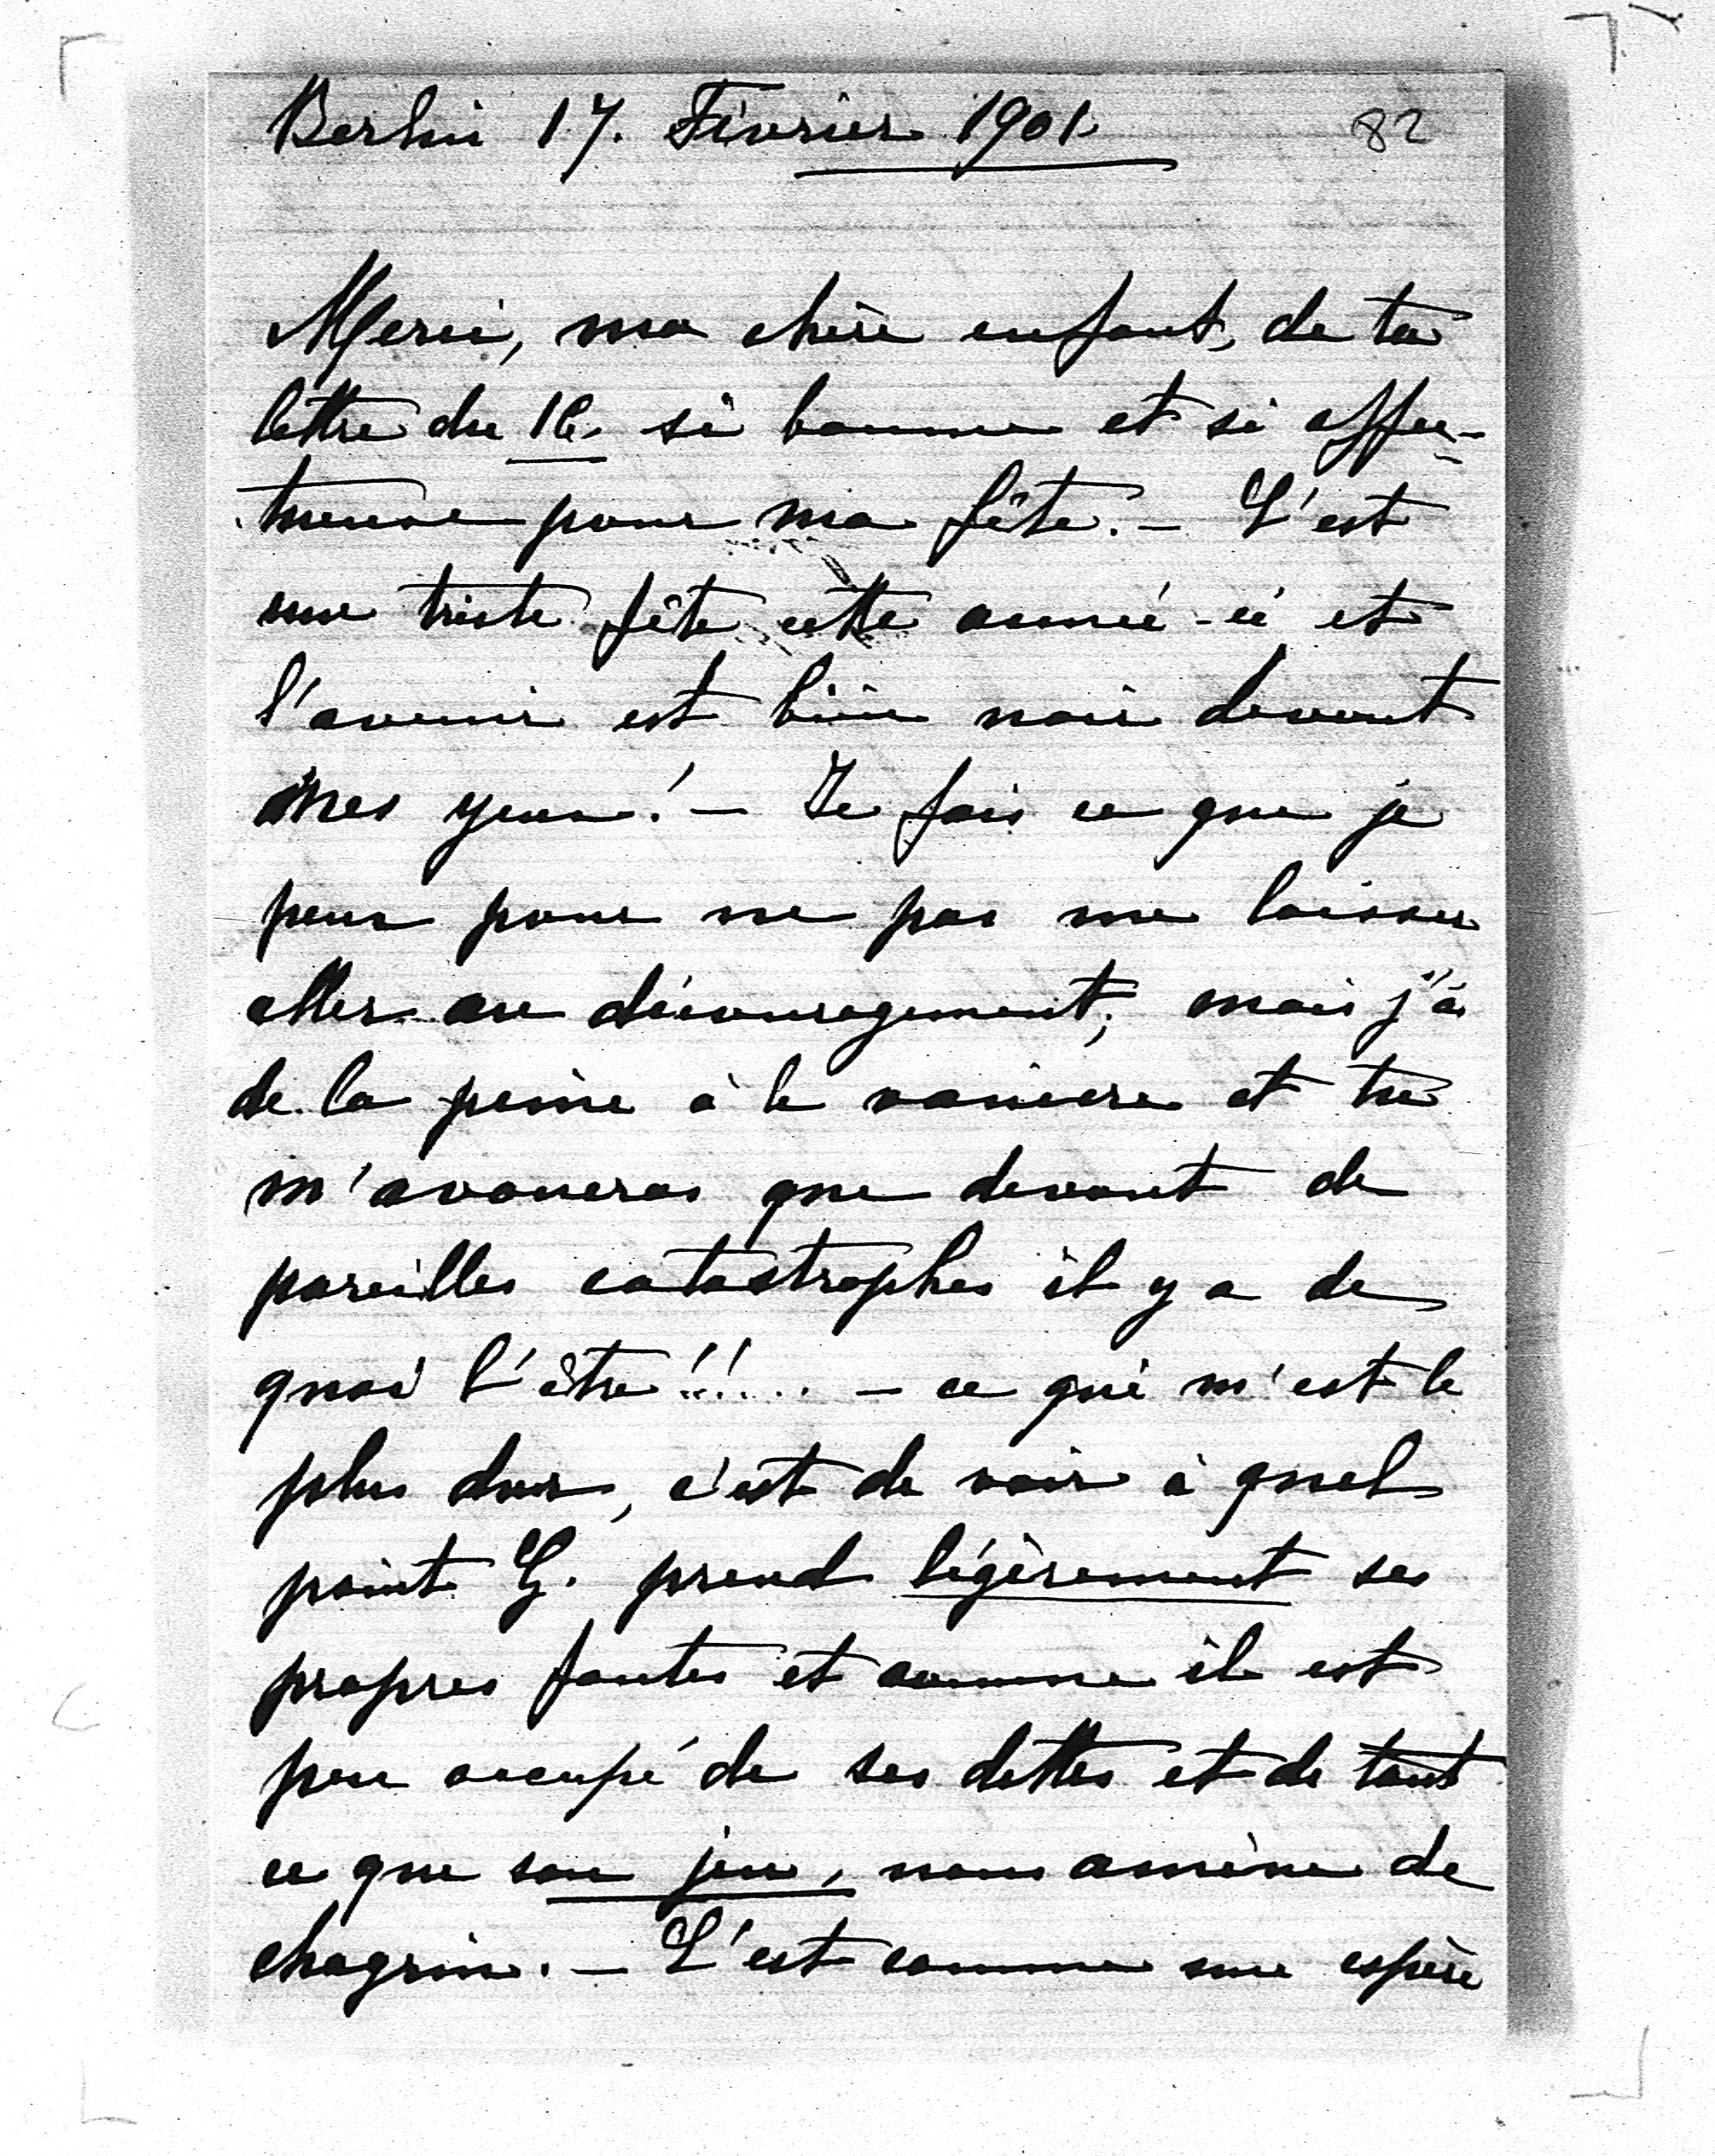 Berlin 17. Février 1901.
82
Merci, ma chère enfant, de ta
lettre du 16, si bonne et si affec-
tueuse pour ma fête. – C'est
une triste fête cette année-ci et
l'avenir est bien noir devant
mes yeux! – Je fais ce que je
peux pour ne pas me laisser
aller au découragement; mais j'ai
de la peine à le vaincre et tu
m'avoueras que devant de
pareilles catastrophes il y a de
quoi l'être!!... – ce qui m'est le
plus dur, c'est de voir à quel
point G. prend légèrement ses
propres fautes et comme il est
peu occupé de ses dettes et de tout
ce que son jeu, nous amène de
chagrin. – C'est comme une espèce